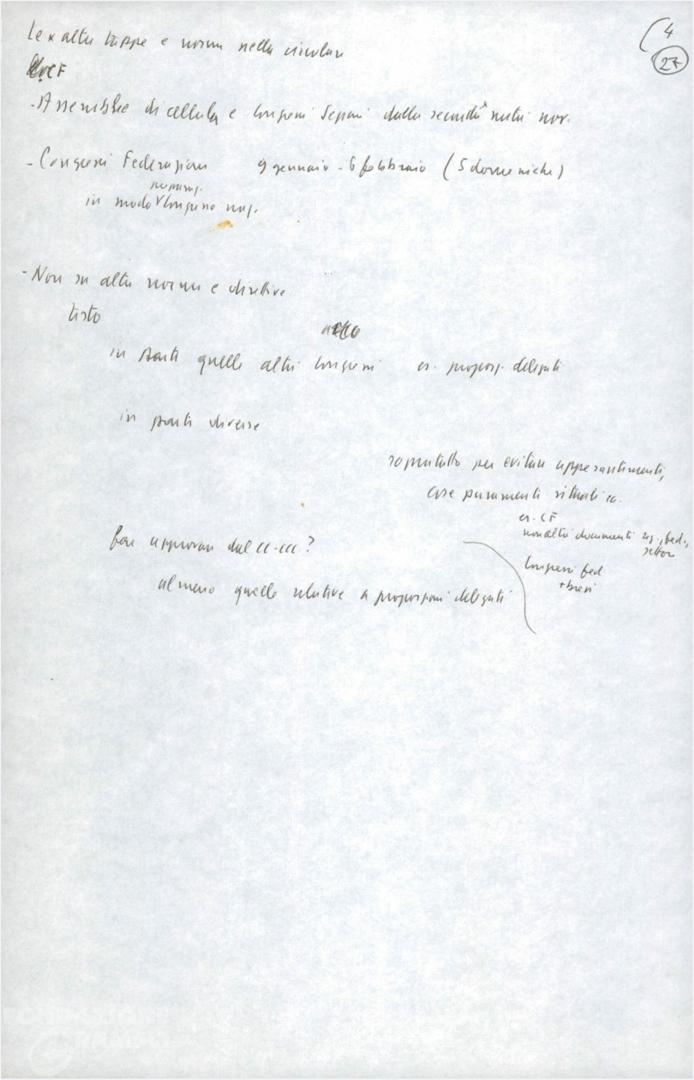 4
27
Le x altre tappe e norme nella circolare
CF
- Assemblee di cellula e Congressi Sezioni dalla seconda metà nov.
- Congressi Federazioni 9 gennaio - 6 febbraio (5 domeniche)
in modo Congresso naz.
- Non su altre norme e direttive
testo
in parti quelle altri Congressi es. propos. delegati
in parti diverse
sopratutto per evitare appesantimenti,
cose puramente rituali ecc.
es. CF
non altri documenti reg., fed.,
settori
Congressi fed
+ brevi
fare approvare dal CC-CCC?
almeno quelle relative a proporzioni delegati